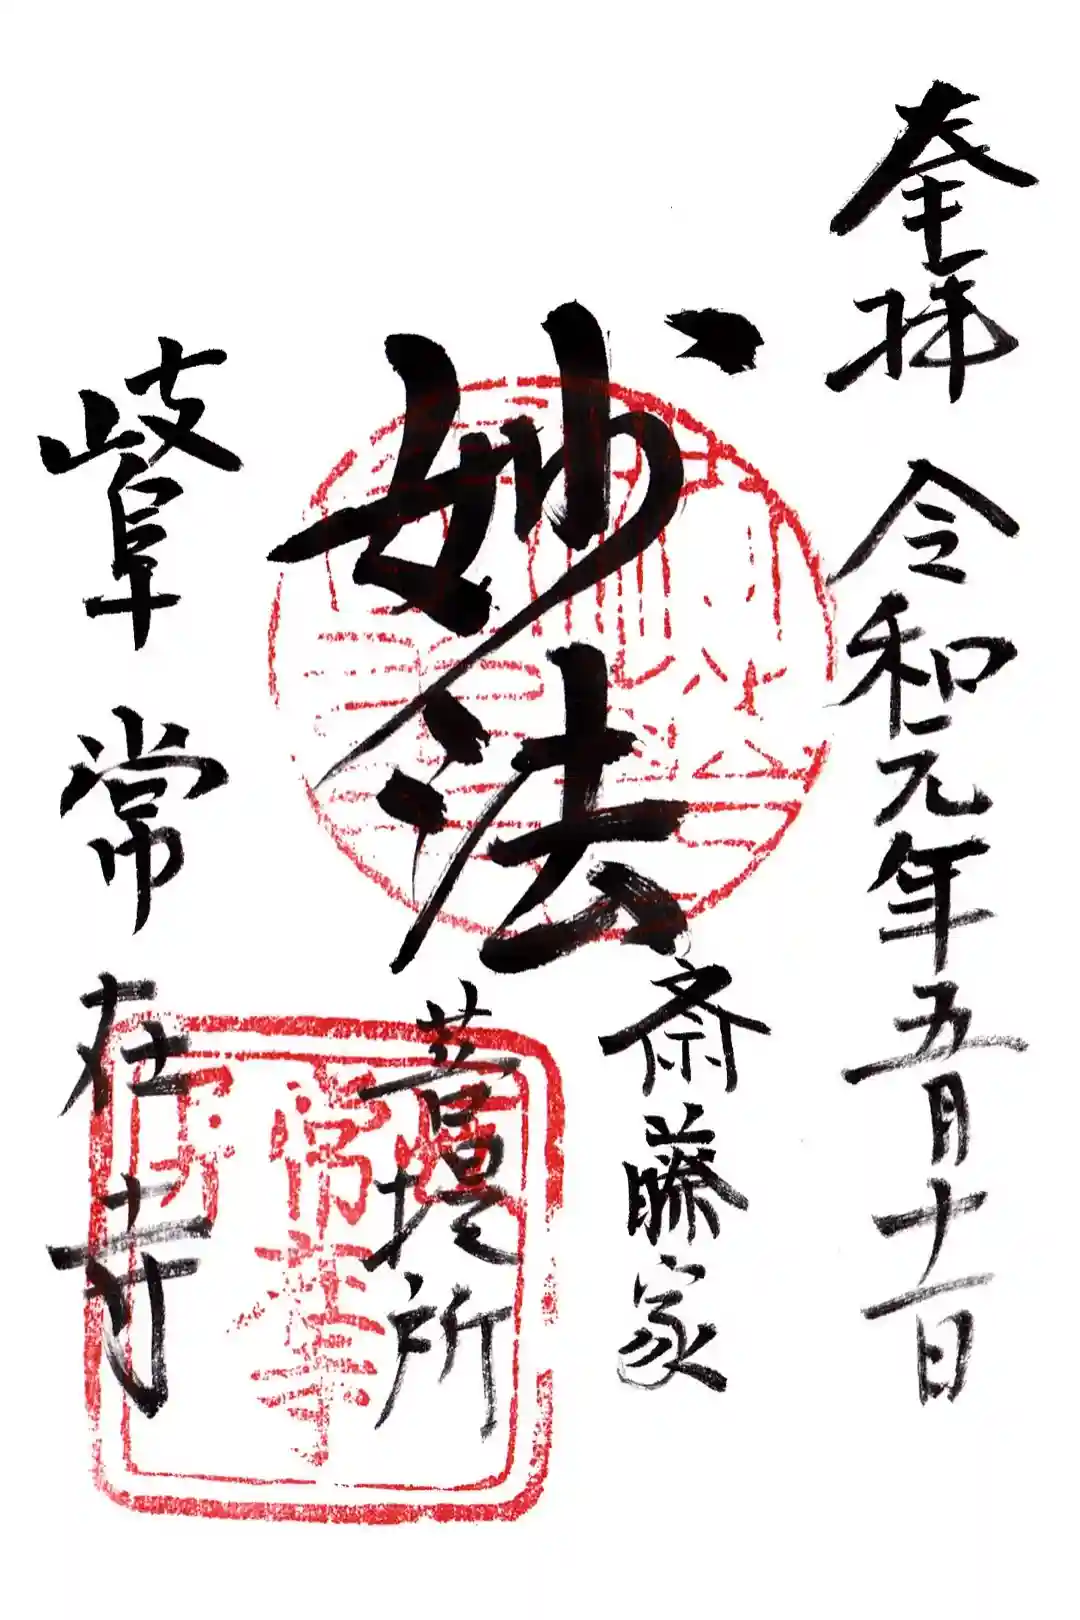 奉拝 令和元年五月十二日
妙法
斎藤家
菩提所
岐阜 常在寺